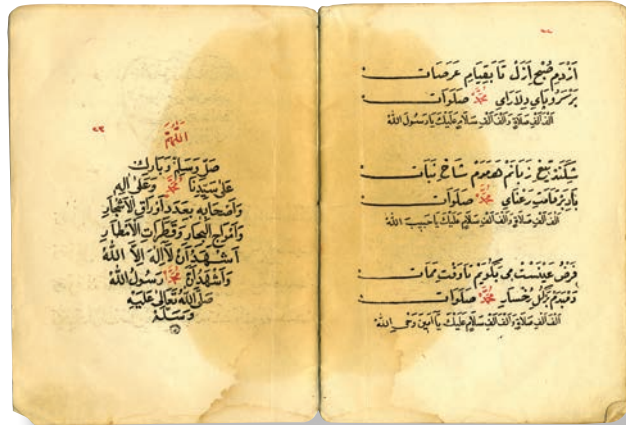 ٢٢
اَزْدَمِ صُبْحِ اَزَلْ تَا بَقِيَامِ عَرَصَات
بَرْسَرُوپَايِ دِلَارَايِ مُحَمَّدْ صَلَوَات
اَلْفُ اَلْفِ صَلَاةٍ وَاَلْفُ اَلْفِ سَلَامٍ عَلَيْكَ يَا رَسُولَ اللهْ
شِكَنَدْ تيغِ زَبَانَمْ هَمَه دَمْ شَاخِ نَبَات
بَادْ بَرْ قَامَتِ رَعْنَايِ مُحَمَّدْ صَلَوَات
اَلْفُ اَلْفِ صَلَاةٍ وَاَلْفُ اَلْفِ سَلَامٍ عَلَيْكَ يَا حَبِيبَ اللهْ
فَرْضِ عَيْنَسْت مِى بِگُويَمْ تَا وَقْتِ مَمَات
دَمْبَدَمْ بَرْ گُلِ رُخْسَارِ مُحَمَّدْ صَلَوَات
اَلْفُ اَلْفِ صَلَاةٍ وَاَلْفُ اَلْفِ سَلَامٍ عَلَيْكَ يَا اَمِينَ وَحْىِ اللهْ
٢٣
اَللّٰهُمَّ
صَلِّ وَسَلِّمْ وَبَارِكْ
عَلٰى سَيِّدِنَا مُحَمَّدٍ وَعَلٰى اٰلِهِ
وَاَصْحَابِهِ بِعَدَدِ اَوْرَاقِ الْاَشْجَارِ
وَاَمْوَاجِ الْبِحَارِ وَقَطَرَاتِ الْاَمْطَارِ
اَشْهَدُ اَنْ لَا اِلٰهَ اِلَّا اللهُ
وَاَشْهَدُ اَنَّ مُحَمَّدْ رَسُولُ اللهْ
صَلَّى اللهُ تَعَالٰى عَلَيْهِ
وَسَلَّمْ